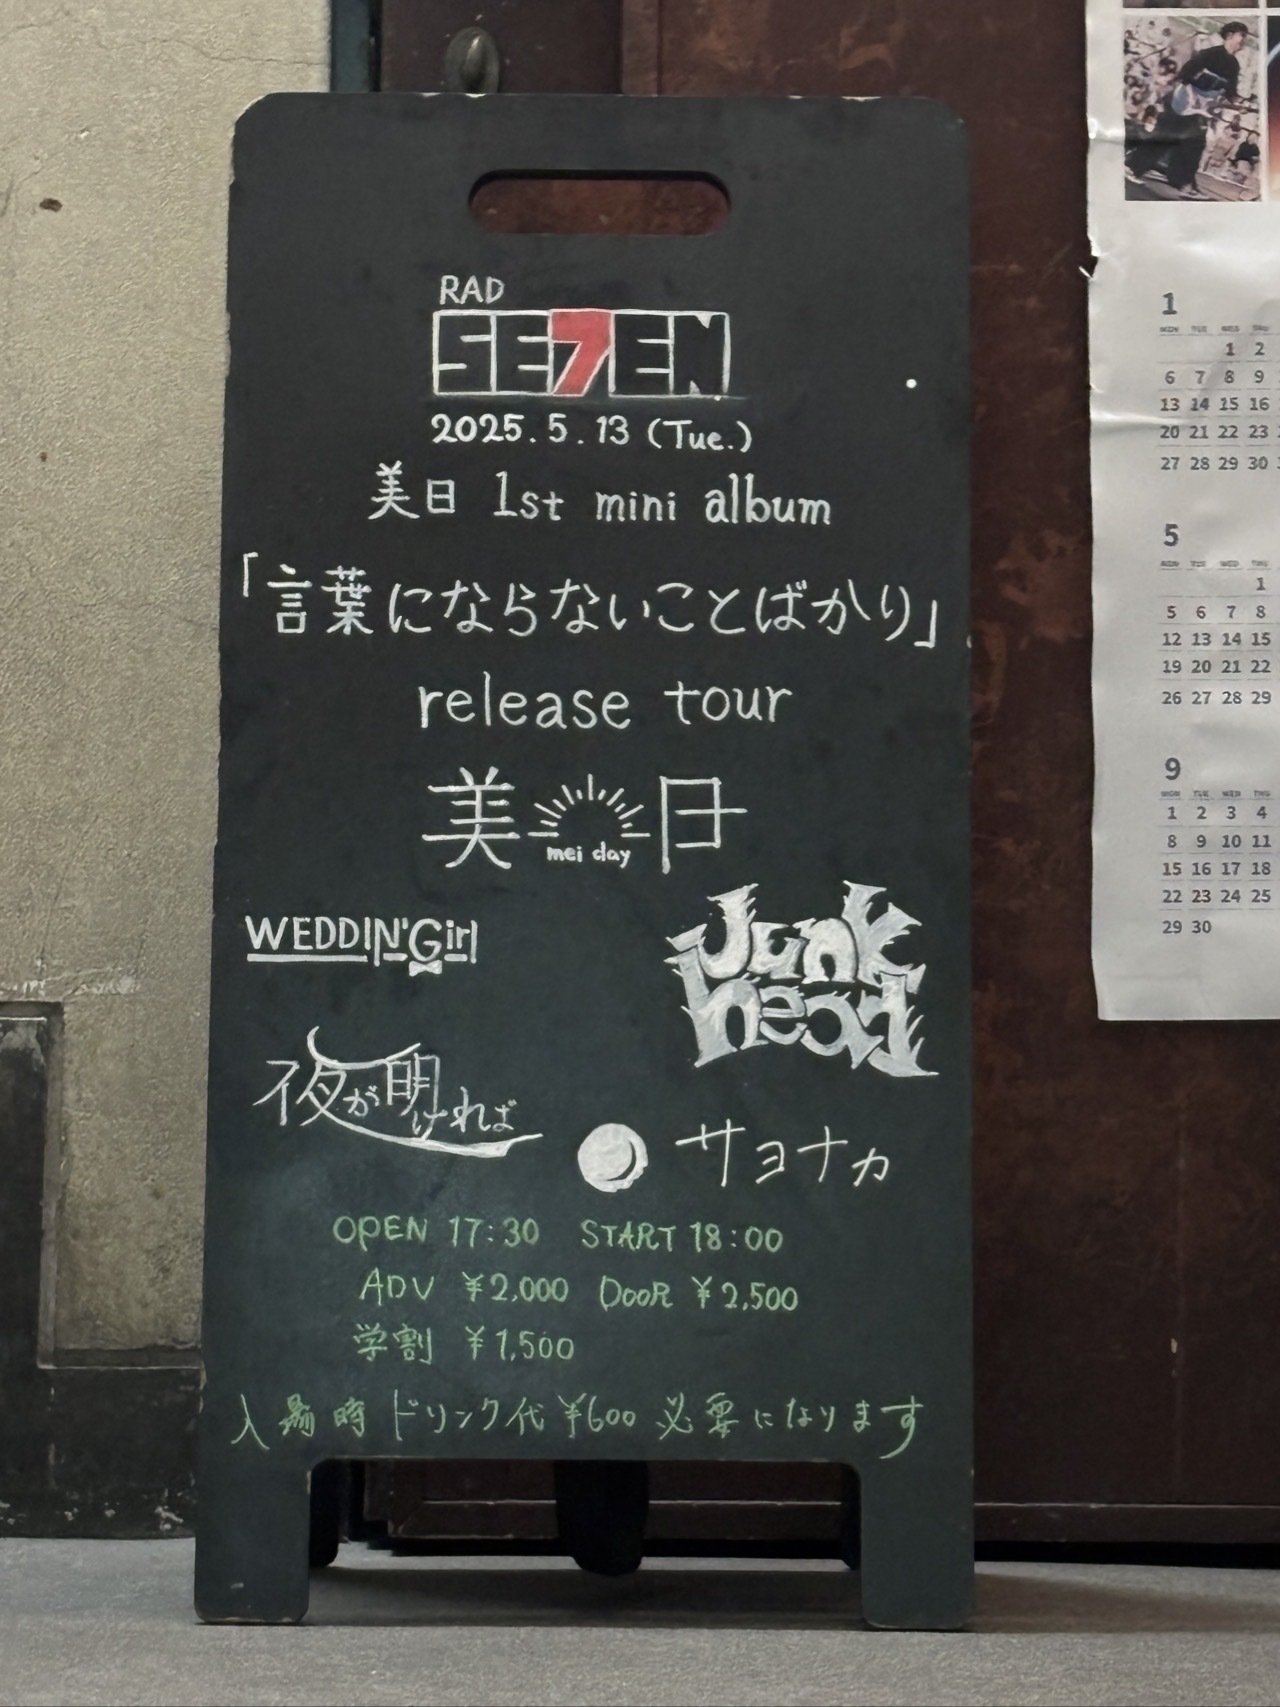 RAD
SE7EN
2025.5.13 (Tue.)
美日 1st mini album
「言葉にならないことばかり」
release tour
美日
mei day
WEDDIN'Girl
Junk head
夜が明ければ
サヨナカ
OPEN 17:30 START 18:00
ADV ¥2,000 DooR ¥2,500
学割 ¥1,500
入場時 ドリンク代 ¥600 必要になります
1
MON TUE WED THU
1 2
6 7 8 9
13 14 15 16
20 21 22 23
27 28 29 30
5
MON TUE WED THU
1
5 6 7 8
12 13 14 15
19 20 21 22
26 27 28 29
9
MON TUE WED THU
1 2 3 4
8 9 10 11
15 16 17 18
22 23 24 25
29 30